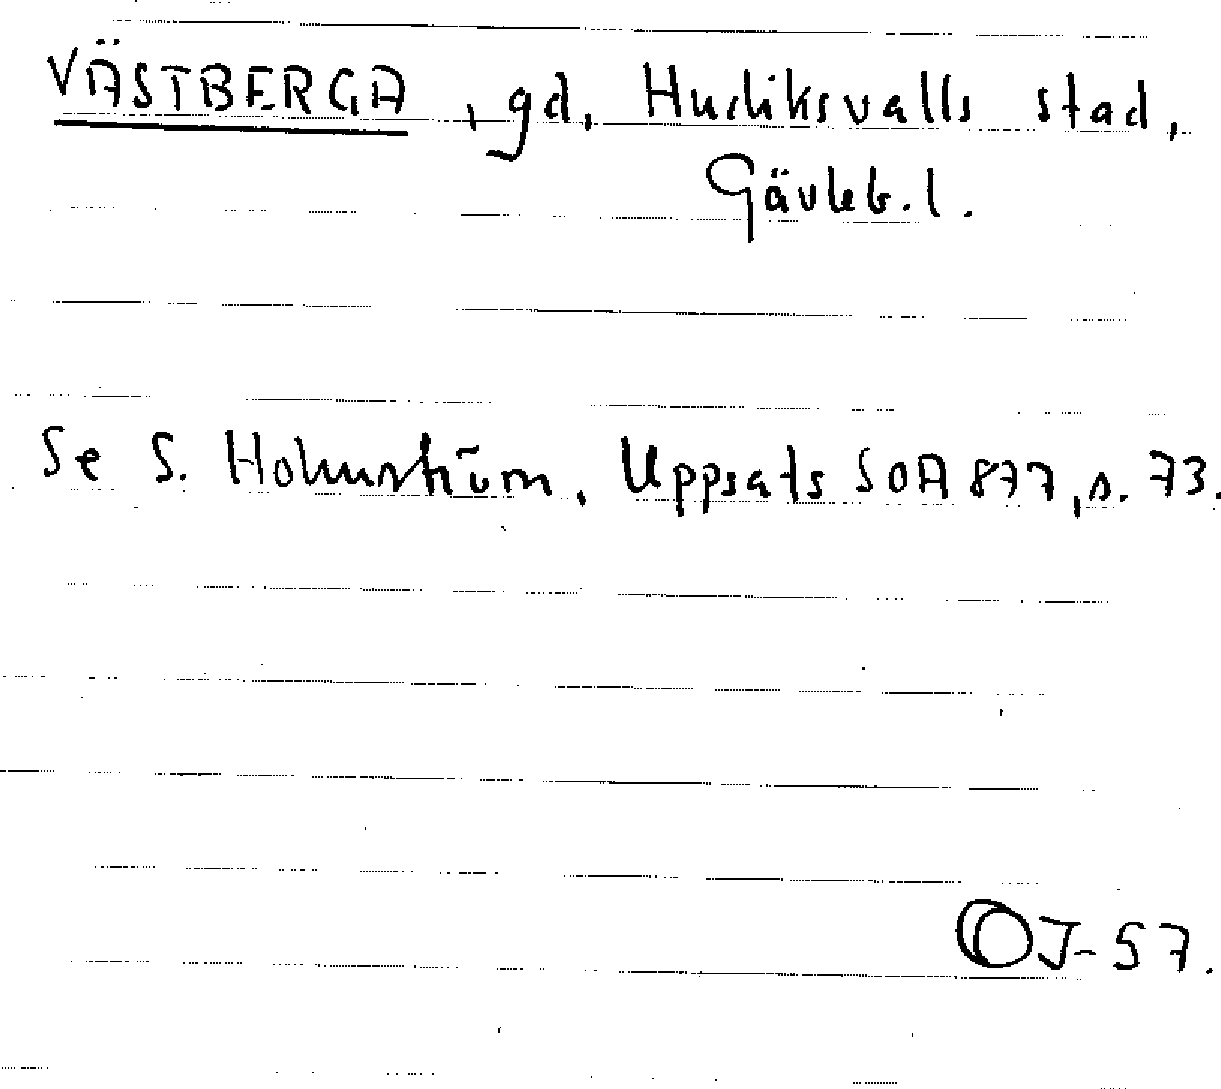 VÄSTBERGA, gd, Hudiksvalls stad,
Gävleb. l.
Se S. Holmström, Uppsats SOA 877, s. 73.
OJ-57.